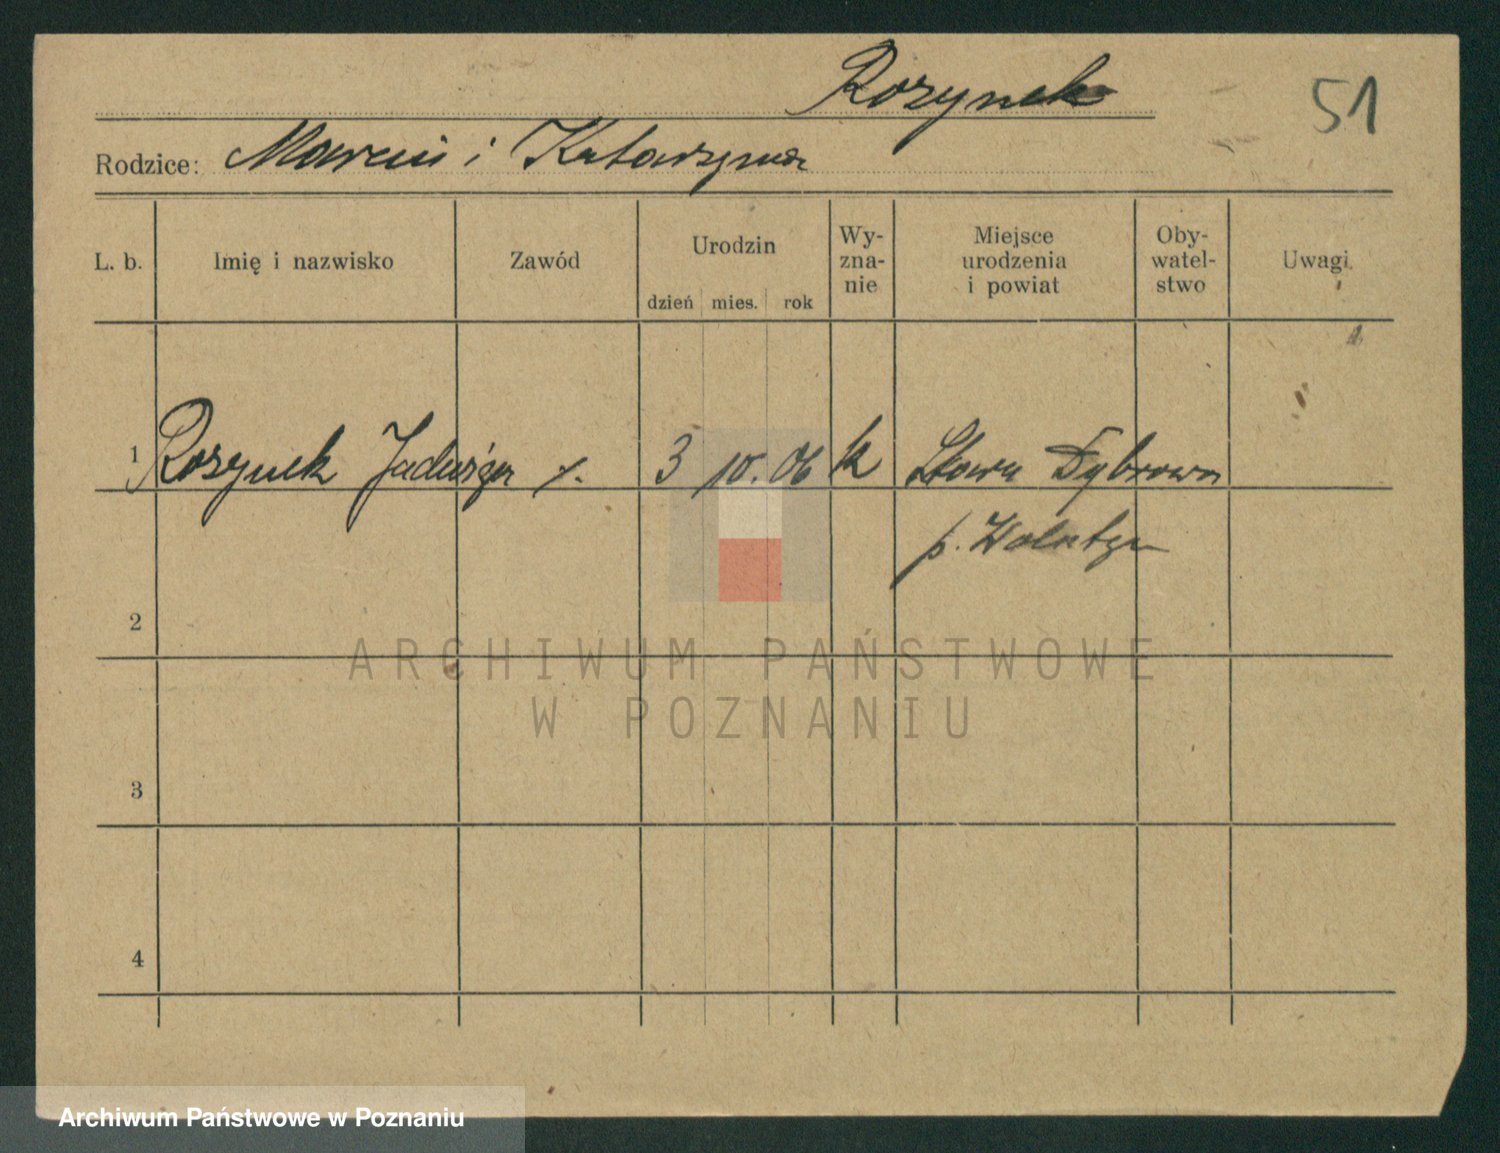 Rozynek
51
Rodzice: Marcin i Katarzyna
L. b. Imię i nazwisko Zawód Urodzin dzień mies. rok Wy-zna-nie Miejsce urodzenia i powiat Oby-watel-stwo Uwagi
1 Rozynek Jadwiga 3 10. 06 k Stara Dąbrowa
p. Wolsztyn
2
ARCHIWUM PAŃSTWOWE
W POZNANIU
3
4
Archiwum Państwowe w Poznaniu